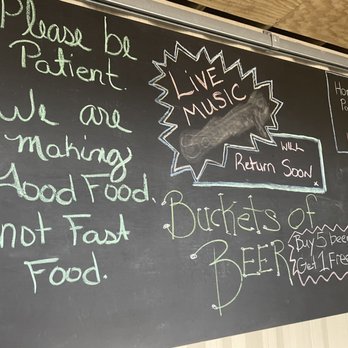 Please be
Patient.
We are
making
Good Food.
not Fast
Food.
LIVE
MUSIC
WILL
Return Soon
Buckets of
BEER
Buy 5 beer
Get 1 Free